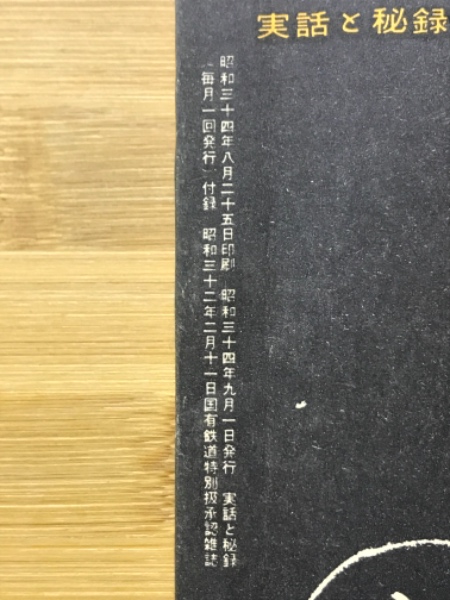 実話と秘録
昭和三十四年八月二十五日印刷 昭和三十四年九月一日発行 実話と秘録
(毎月一回発行)付録 昭和三十二年二月十一日国有鉄道特別扱承認雑誌